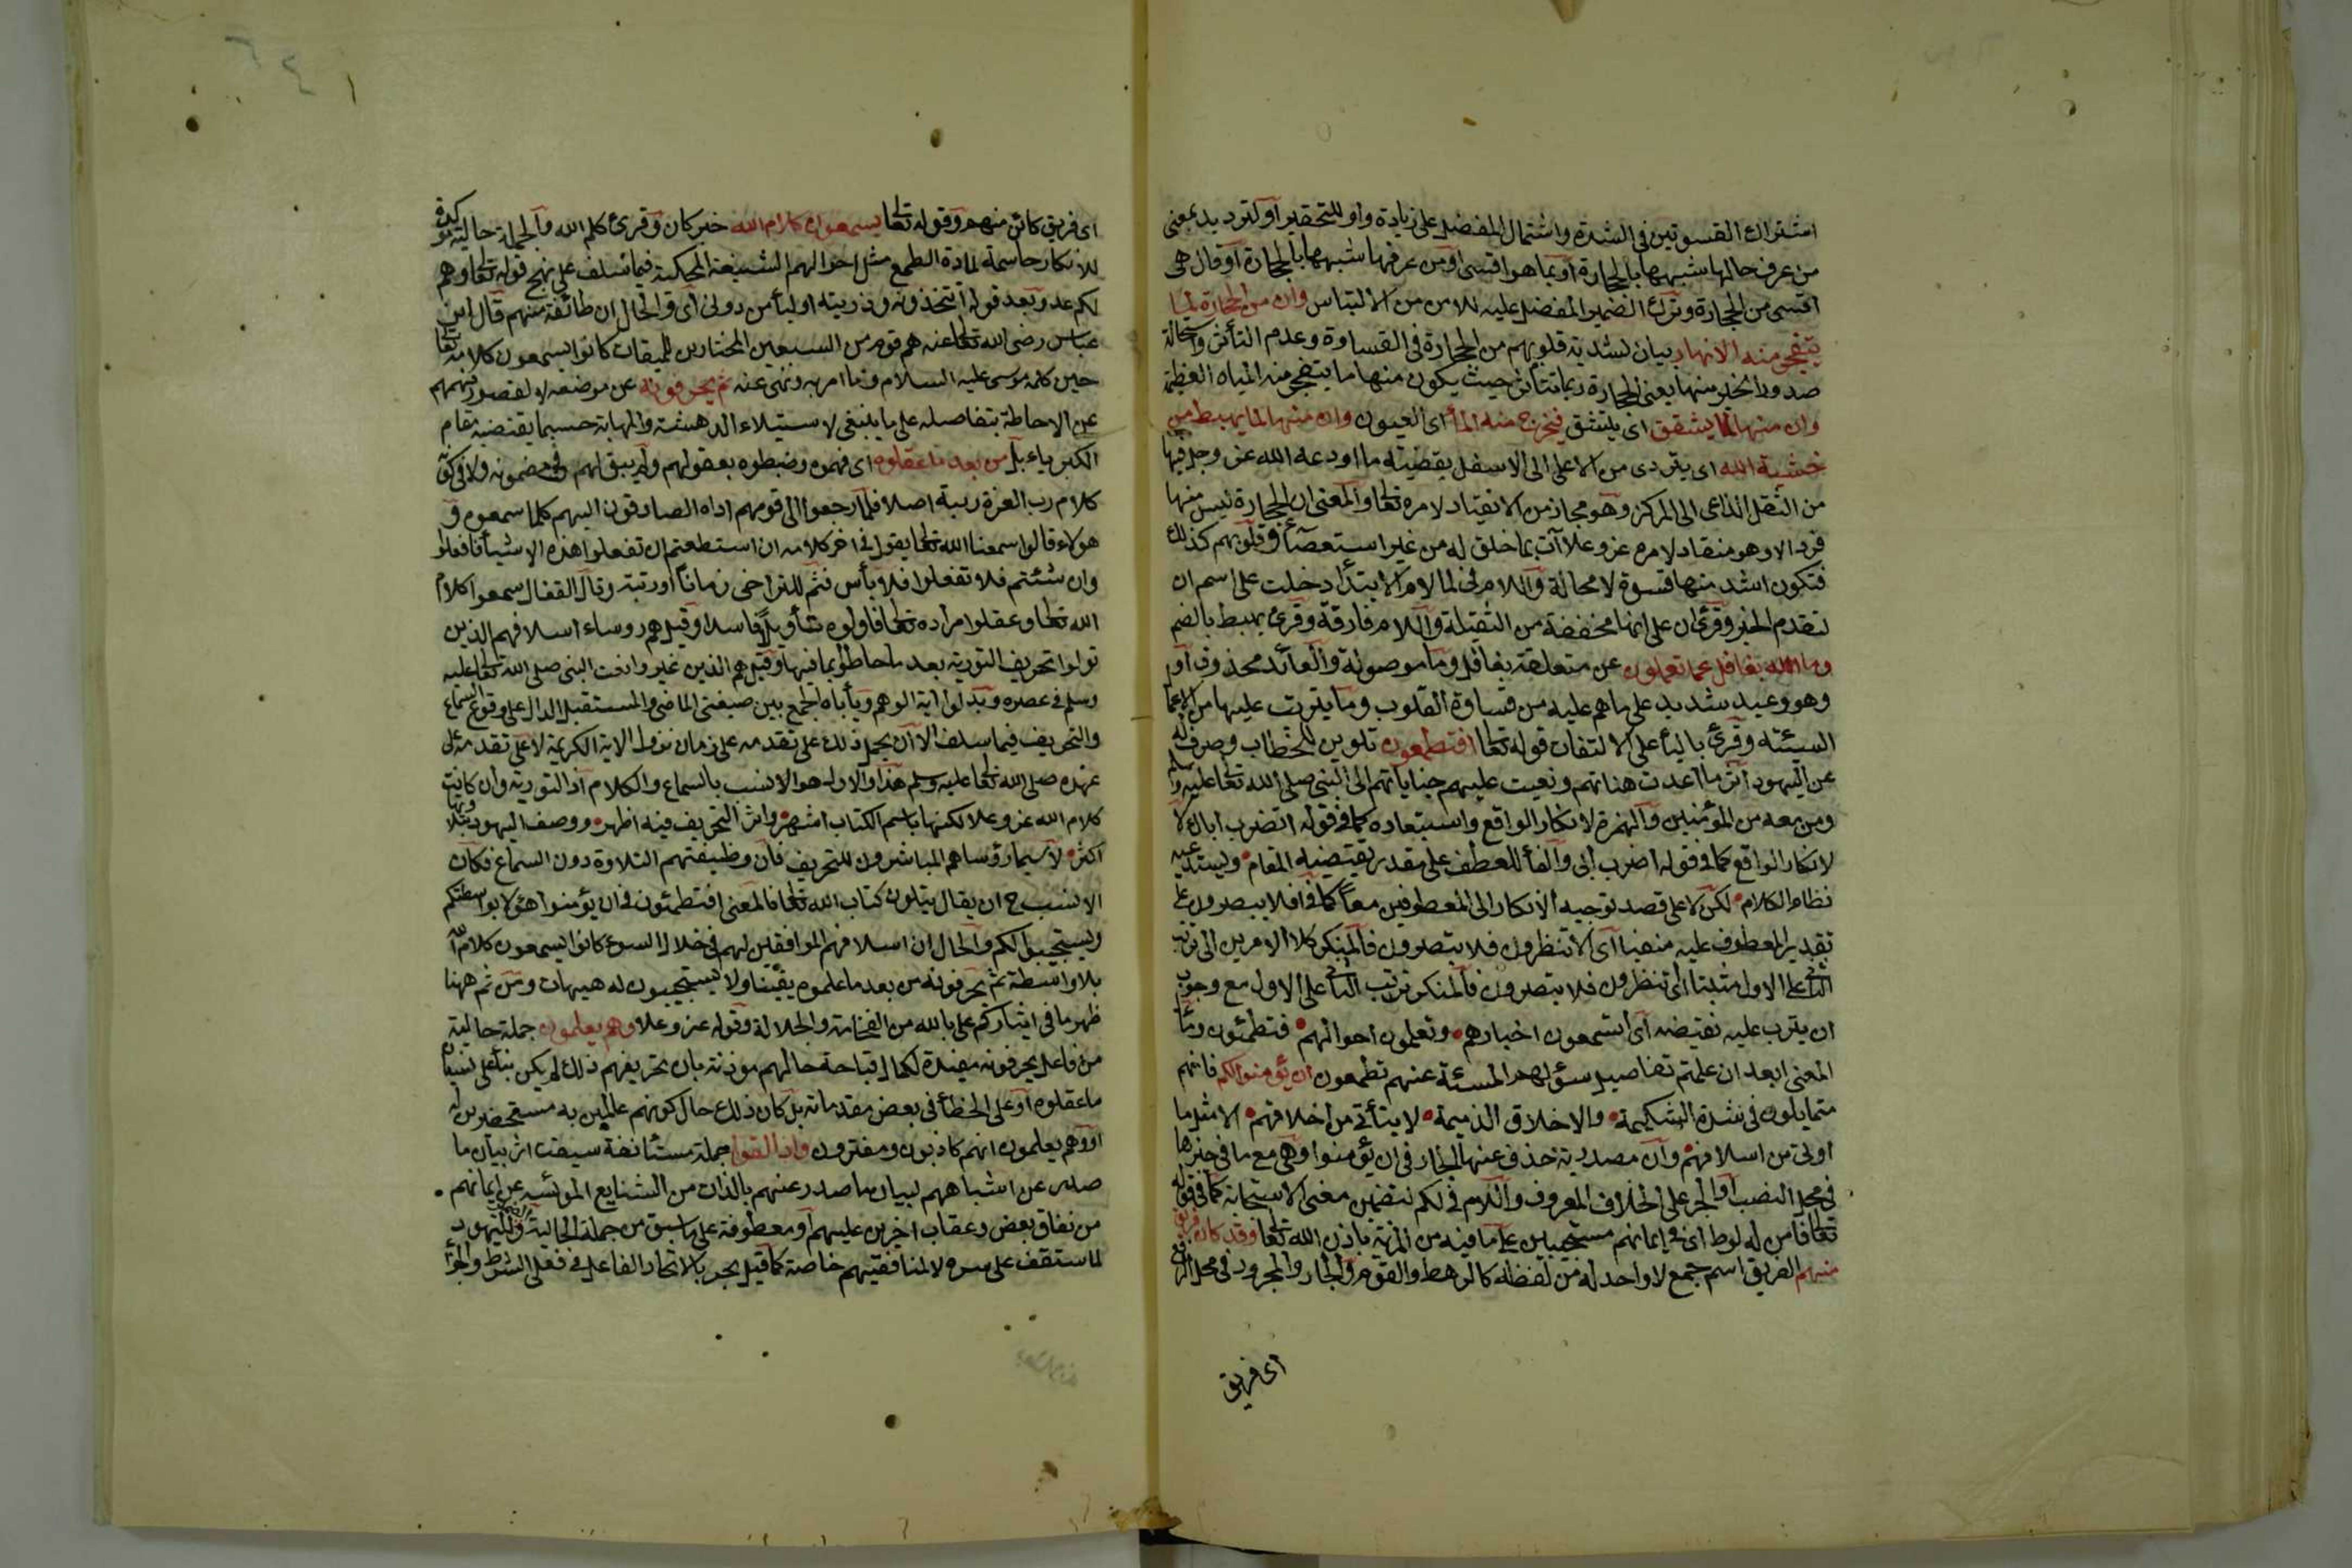 اشتراك القسوتين في الشدة واشتمال المفضل على زيادة واو للتخيير او للترديد بمعنى
من عرف حالها شبهها بالحجارة او بما هو اقسى او من عرفها شبهها بالحجارة او قال هي
اقسى من الحجارة وترك الضمير المفضل عليه للامن من الالتباس وان من الحجارة لما
يتفجر منه الانهار بيان لشدية قلوبهم من الحجارة في القساوة وعدم التأثر واستحالة
صدور الخير منها يعني الحجارة ربما تتأثر حيث يكون منها ما يتفجر منه المياه العظيمة
وان منها لما يشقق اي يتشقق فيخرج منه الماء اي العيون وان منها لما يهبط من
خشية الله اي يتردى من الاعلى الى الاسفل بقضية ما اودعه الله عز وجل فيها
من الثقل الداعي الى المركز وهو مجاز من الانقياد لامره تعالى والمعنى ان الحجارة ليس منها
فرد الا وهو منقاد لامره عز وعلا آت بما خلق له من غير استعصاء وقلوبهم كذلك
فتكون اشد منها قسوة لا محالة واللام في لما لام الابتداء دخلت على اسم ان
لتقدم الخبر وقرئ ان على انها مخففة من الثقيلة واللام فارقة وقرئ يهبط بالضم
وما الله بغافل عما تعملون عن متعلقة بغافل وما موصولة والعائد محذوف او
وهو وعيد شديد على ما هم عليه من قساوة القلوب وما يترتب عليها من الاعما
السيئة وقرئ بالياء على الالتفات قوله تعالى افتطمعون تلوين للخطاب وصرف له
عن اليهود اثر ما عدت هناتهم ونعيت عليهم جناياتهم الى النبي صلى الله تعالى عليه وسلم
ومن معه من المؤمنين والهمزة لانكار الواقع واستبعاده كما في قوله اتضرب اباك لا
لانكار الوقوع كما في قوله اضرب ابي والفاء للعطف على مقدر يقتضيه المقام ويستدعيه
نظام الكلام لكن لا على قصد توجيه الانكار الى المعطوفين معا كما في افلا يبصرون على
تقدير المعطوف عليه منفيا اي الا تنظرون فلا تبصرون فالمنكر كلا الامرين الى ترتب
الثاني على الاول مثبتا اي تنظرون فلا تبصرون فالمنكر ترتب الثاني على الاول مع وجوب
ان يترتب عليه نقيضه اي اتسمعون اخبارهم وتعلمون احوالهم فتطمعون ومآل
المعنى ابعد ان علمتم تفاصيل شؤنهم المسيئة عنهم تطمعون ان يؤمنوا لكم فانهم
متمايلون في شدة الشكيمة والاخلاق الذميمة لا يتأتى من اخلاقهم الا مثل ما
اوتي من اسلافهم وان مصدرية حذف عنها الجار في ان يؤمنوا وهي مع ما في حيزها
في محل النصب او الجر على الخلاف المعروف واللام في لكم لتضمين معنى الاستجابة كما في قوله
تعالى فآمن له لوط اي في ايمانهم مستجيبين لكم ما فيه من المزية باذن الله تعالى وقد كان فريق
منهم الفريق اسم جمع لا واحد له من لفظه كالرهط والقوم والجار والمجرور في محل الرفع
اي فريق
اي فريق كائن منهم وقوله تعالى يسمعون كلام الله خبر كان وقرئ كلم الله والجملة حالية مؤكدة
للانكار حاسمة لمادة الطمع مثل احوالهم الشنيعة المحكية فيما سلف على نهج قوله تعالى وهم
لكم عدو بعد قوله افتتخذونه وذريته اولياء من دوني اي والحال ان طائفة منهم قال ابن
عباس رضي الله تعالى عنه هم قوم من السبعين المختارين للميقات كانوا يسمعون كلامه تعالى
حين كلم موسى عليه السلام وما امر به ونهى عنه ثم يحرفونه عن موضعه لا لقصور فهمهم
عن الاحاطة بتفاصيله على ما ينبغي لاستيلاء الدهشة والمهابة حسبما يقتضيه مقام
الكبرياء بل من بعد ما عقلوه اي فهموه وضبطوه بعقولهم ولم يبق لهم في مضمونه ولا في كونه
كلام رب العزة ريبة اصلا فلما رجعوا الى قومهم اداه الصادقون اليهم كما سمعوه و
هؤلاء قالوا سمعنا الله تعالى يقول في اخر كلامه ان استطعتم ان تفعلوا هذه الاشياء فافعلوا
وان شئتم فلا تفعلوا فلا بأس فثم للتراخي زمانا او رتبة وقال القفال سمعوا كلام
الله تعالى وعقلوا مراده تعالى فاولوه تأويلا فاسدا وقيل هم رؤساء اسلافهم الذين
تولوا تحريف التورية بعد ما احاطوا بما فيها وقيل هم الذين غيروا نعت النبي صلى الله تعالى عليه
وسلم في عصره وبدلوا آية الرجم ويأباه الجمع بين صيغتي الماضي والمستقبل الدال على وقوع السماع
والتحريف فيما سلف الا ان يحمل ذلك على تقدمه على زمان نزول الآية الكريمة لا على تقدمه على
عهده صلى الله تعالى عليه وسلم هذا والاول هو الانسب بالسماع والكلام اذ التورية وان كانت
كلام الله عز وعلا لكنها باسم الكتاب اشهر واثر التحريف فيه اظهر ووصف اليهود بتلاوتها
اكثر لا سيما رؤساهم المباشرون للتحريف فان وظيفتهم التلاوة دون السماع فكان
الانسب ح ان يقال يتلون كتاب الله تعالى فالمعنى افتطمعون في ان يؤمنوا هؤلاء بواسطتكم
ويستجيبوا لكم والحال ان اسلافهم الموافقين لهم في خلال السوء كانوا يسمعون كلام الله
بلا واسطة ثم يحرفونه من بعد ما علموه يقينا ولا يستجيبون له هيهات ومن ثم ههنا
ظهر ما في ايثار لكم على بالله من الفخامة والجلالة وقوله عز وعلا وهم يعلمون جملة حالية
من فاعل يحرفونه مفيدة لكمال قباحة حالهم مؤذنة بان تحريفهم ذلك لم يكن بناء على نسيان
ما عقلوه او على الخطأ في بعض مقدماته بل كان ذلك حال كونهم عالمين به مستحضرين له
او وهم يعلمون انهم كاذبون ومفترون واذا لقوا جملة مستأنفة سيقت اثر بيان ما
صدر عن اشباههم لبيان ما صدر عنهم بالذات من الشنايع المؤيسة عن ايمانهم
من نفاق بعض وعتاب آخرين عليهم او معطوفة على ما سبق من جملة الحالية والضمير لليهود
لما ستقف على سره لا لمنافقيهم خاصة كما قيل تحريا لاتحاد الفاعل في فعلي الشرط والجزاء